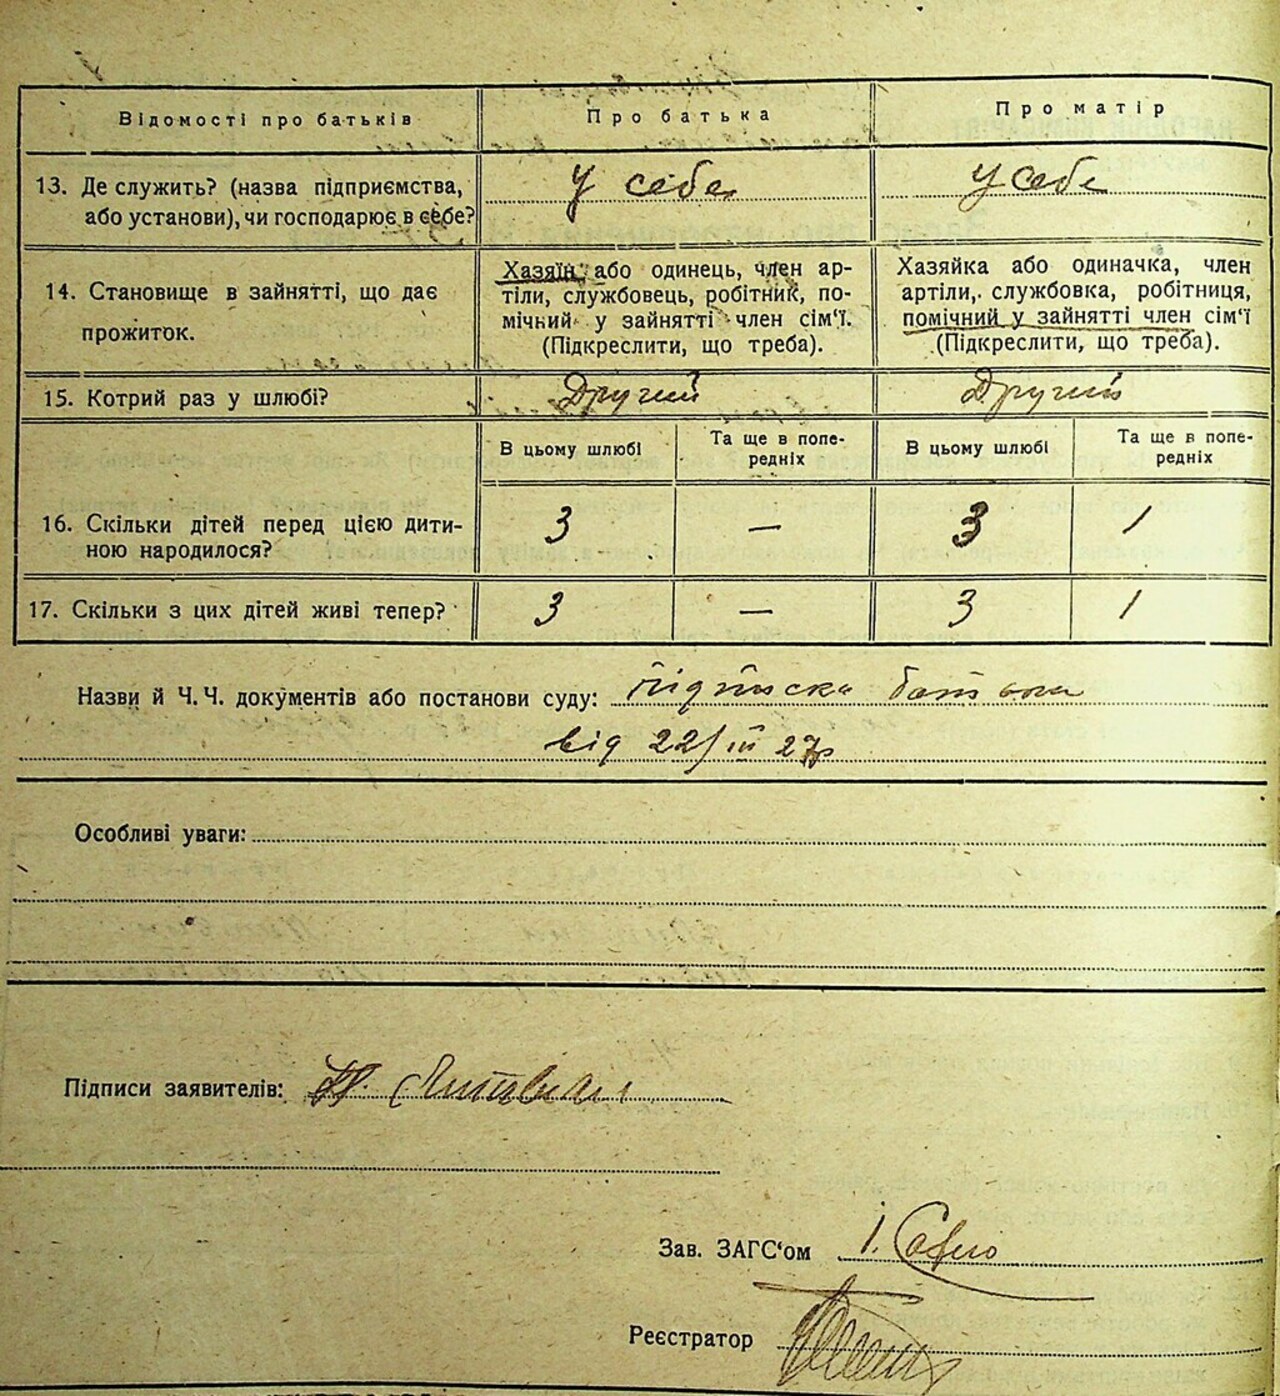 Відомості про батьків
Про батька
Про матір
13. Де служить? (назва підприємства,
або установи), чи господарює в себе?
у себе
у себе
14. Становище в зайнятті, що дає
прожиток.
Хазяїн або одинець, член ар-
тілі, службовець, робітник, по-
мічний у зайнятті член сім'ї.
(Підкреслити, що треба).
Хазяйка або одиначка, член
артілі, службовка, робітниця,
помічний у зайнятті член сім'ї
(Підкреслити, що треба).
15. Котрий раз у шлюбі?
Другий
Другий
В цьому шлюбі
Та ще в попе-
редніх
В цьому шлюбі
Та ще в попе-
редніх
16. Скільки дітей перед цією дити-
ною народилося?
3
—
3
1
17. Скільки з цих дітей живі тепер?
3
—
3
1
Назви й Ч. Ч. документів або постанови суду: підписка батька
від 22/III 27р
Особливі уваги:
Підписи заявителів: Литвин
Зав. ЗАГС'ом І.
Реєстратор